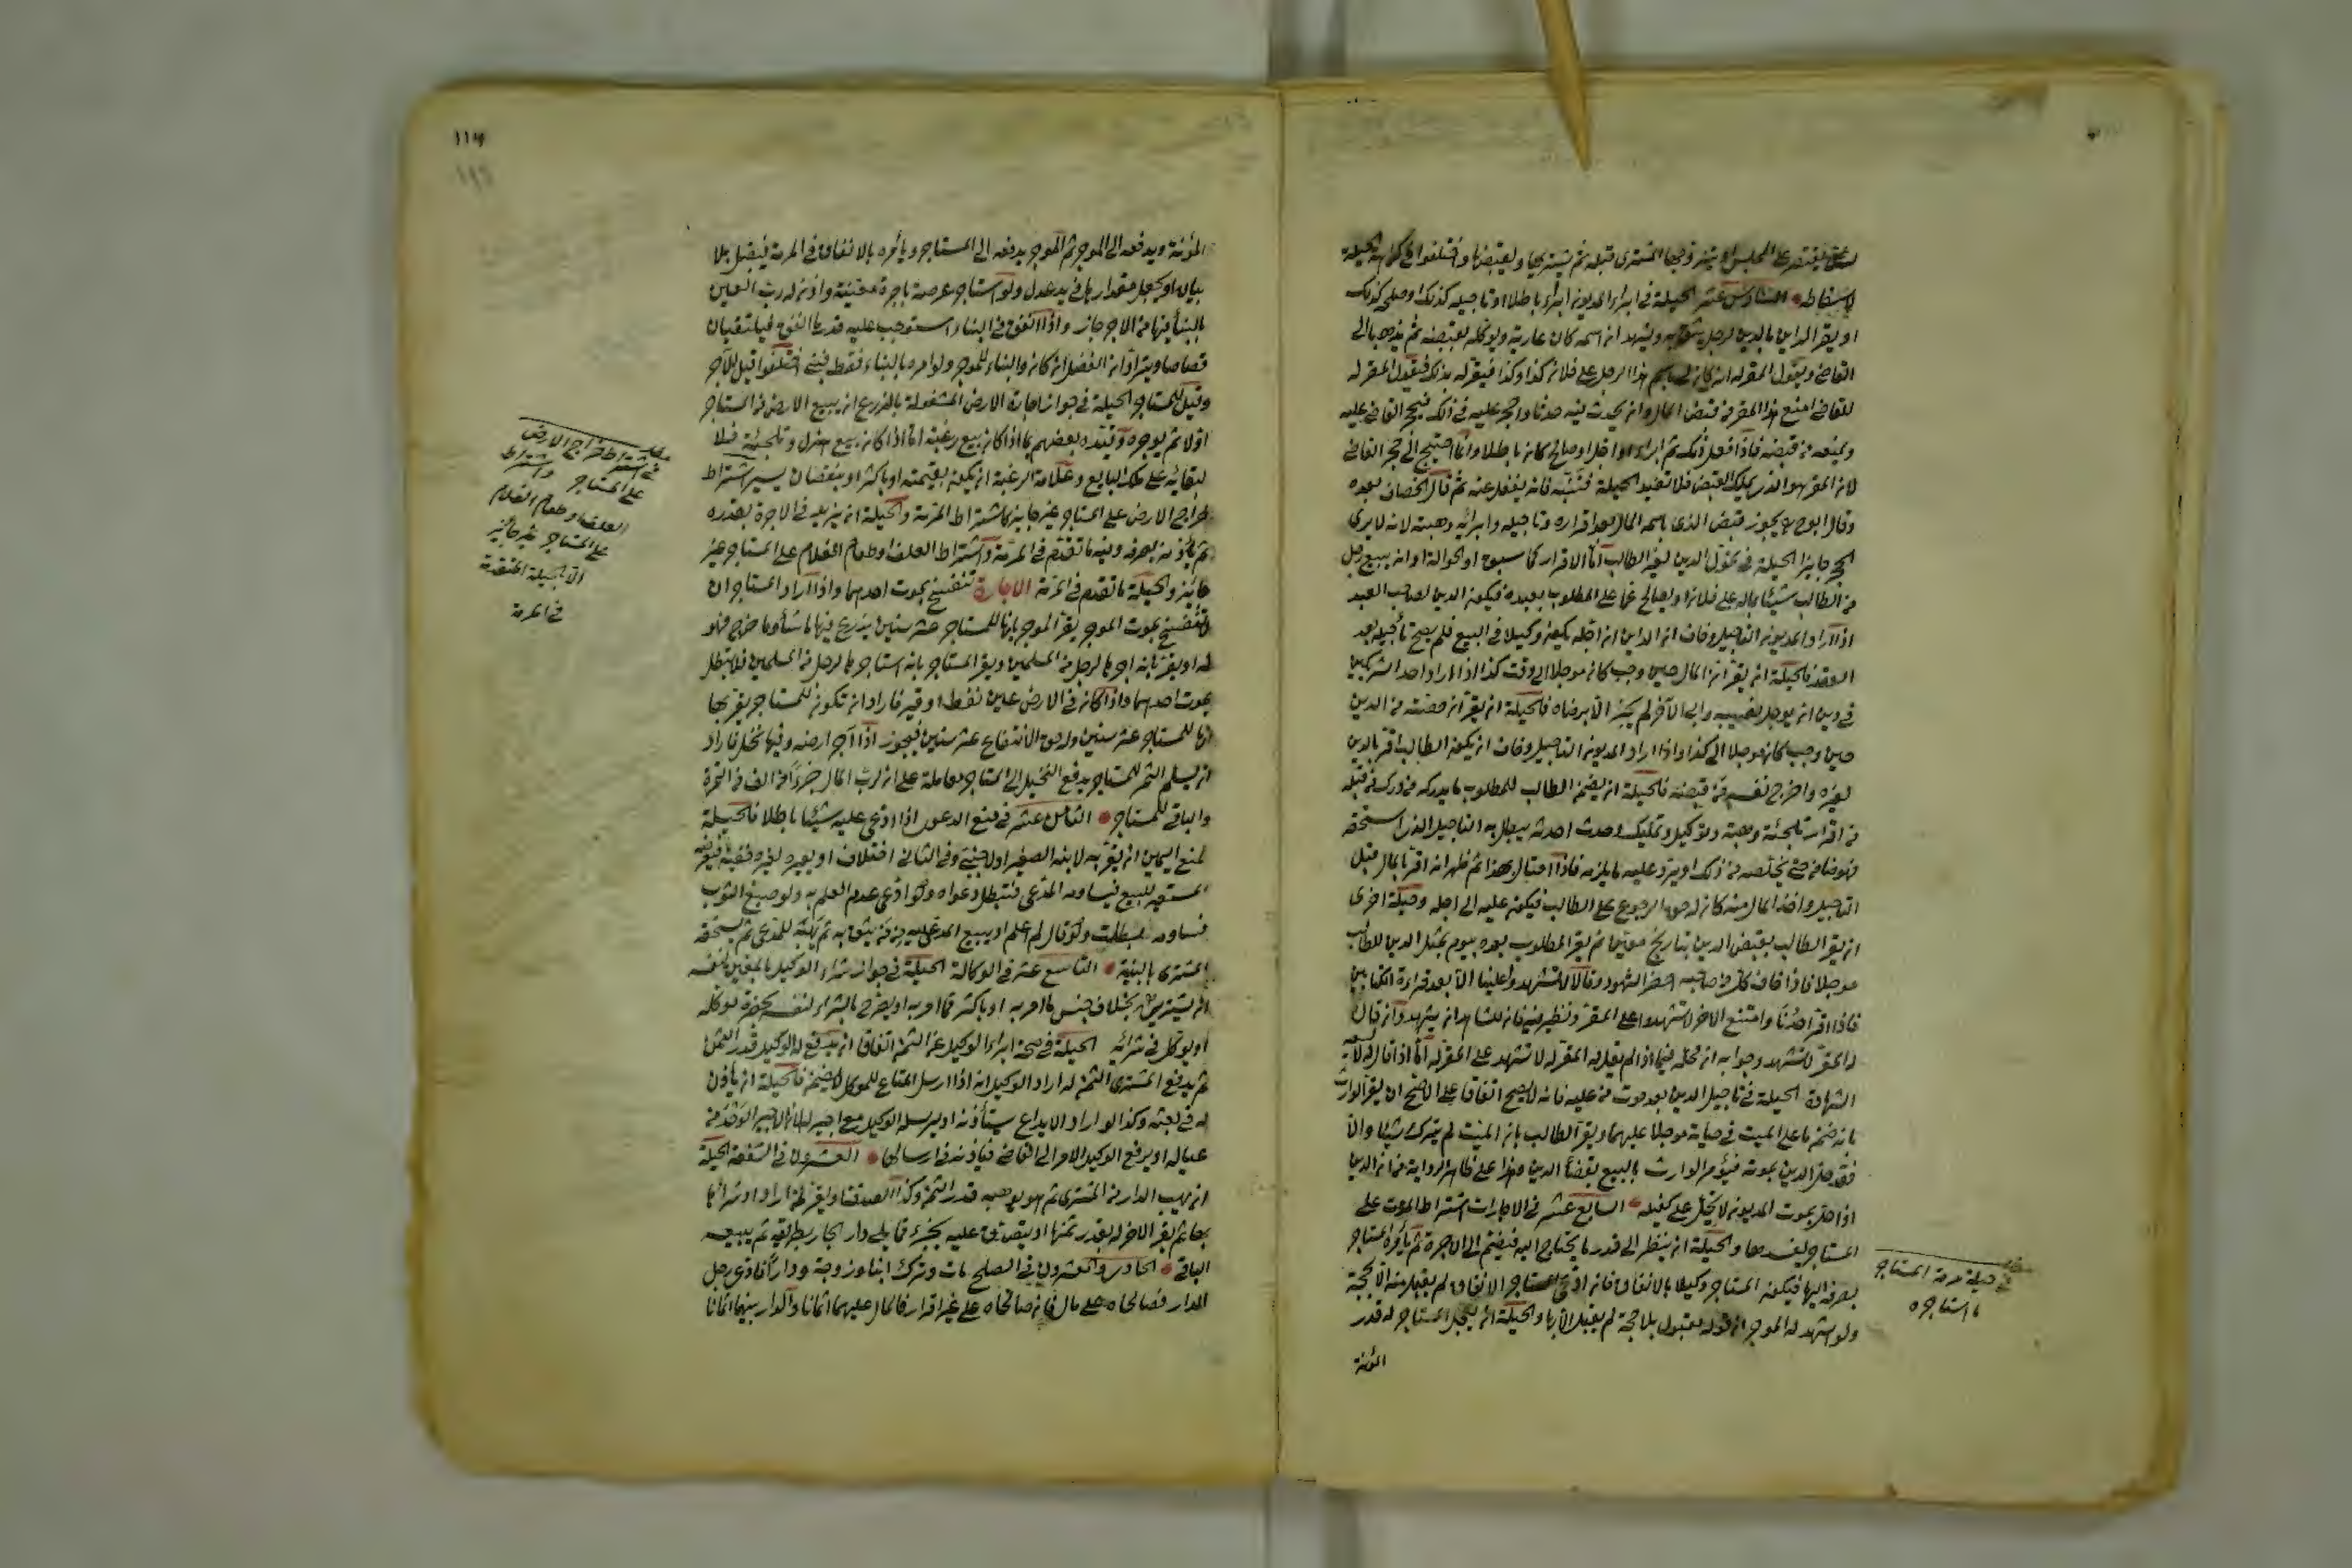 لا سقاطه السادس عشر الحيلة في ابراء المديون ابراء باطلا او تاجيله كذلك او صلحي كذلك
او يقر الداين بالدين لرجل يثق به ويشهد ان اسمه كان عارية ويوكله بقبضه ثم يذهبا الى
القاضي ويقول المقر له انه كان لي باسم هذا الرجل على فلان كذا وكذا فيقر له بذلك فيقول المقر له
للقاضي امنع هذا المقر من قبض المال وان يحدث فيه حدثا واحجر عليه في ذلك فيحجر القاضي عليه
ويمنعه من قبضه فاذا فعل ذلك ثم ابراء او اجل او صالح كان باطلا وانما احتيج الى حجر القاضي
لان المقر هو الذي يملك القبض فلا تفيد الحيلة فتنبه فانه يغفل عنه ثم قال الخصاف بعده
وقال ابو ح يجوز قبض الذي باسمه المال بعد اقراره وتاجيله وابرائه وهبته لانه لا يرى
الحجر جايزا الحيلة في تحول الدين لغير الطالب اما الاقرار كما سبق او الحوالة او ان يبيع رجل
من الطالب شيئا بماله على فلان او يصالح عما على المطلوب بعبده فيكون الدين لصاحب العبد
اذا اراد المديون التاجيل وخاف ان الداين ان اجله يكون وكيلا في البيع فلم يصح تأجيله بعد
العقد فالحيلة ان يقر ان المال حين وجب كان موجلا الى وقت كذا اذا اراد احد الشريكين
في دين ان يوجل نصيبه وابى الآخر لم يجز الا برضاه فالحيلة ان يقر ان حصته من الدين
حين وجب كان موجلا الى كذا واذا اراد المديون التاجيل وخاف ان يكون الطالب اقر بالدين
لغيره واخرج نفسه من قبضه فالحيلة ان يضمن الطالب للمطلوب ما يدركه من درك من قبله
من اقرار تلجئة وهبة وتوكيل وتمليك وحدث احدثه يبطل به التاجيل الذي استحقه
فهو ضامن حتى يخلصه من ذلك او يرد عليه ما يلزمه فاذا احتال بهذا ثم ظهر انه اقر بالمال قبل
التاجيل واخذ المال منه كان له حق الرجوع على الطالب فيكون عليه الى اجله وحيلة اخرى
ان يقر الطالب بقبض الدين بتاريخ معين ثم يقر المطلوب بعده بيوم بمثل الدين للطالب
موجلا فاذا خاف كل من صاحبه احضر الشهود وقالا لا تشهدوا علينا الا بعد قراءة الكتابين
فاذا اقر احدنا وامتنع الاخر لا تشهدوا على المقر ونظر فيه فان للشاهد ان يشهد وان قال
له المقر لا تشهد وجوابه ان محله فيما اذا لم يقل له المقر له لا تشهد على المقر له اما اذا قال له لا
الشهادة الحيلة في تاجيل الدين بعد موت من عليه فانه لا يصح اتفاقا على الاصح ان يقر الوارث
بانه ضمن ما على الميت في حياته موجلا عليهما ويقر الطالب بان الميت لم يترك شيئا والا
فقد حل الدين بموته فيؤمر الوارث بالبيع بقضأ الدين وهذا على ظاهر الرواية من ان الدين
اذا حل بموت المديون لا يحل على كفيله السابع عشر في الاجارات اشتراط المرمت على
المستاجر يفسدها والحيلة ان ينظر الى قدر ما يحتاج اليه فيضم الى الاجرة ثم يأمره المستاجر
بصرفه اليها فيكون المستاجر وكيلا بالانفاق فان ادعى المستاجر الانفاق لم يقبل منه الا بحجة
ولو اشهد له الموجر ان قوله مقبول بلا حجة لم يقبل الا بها والحيلة ان يعجل المستاجر له قدر
المؤنة
مطلب
في حيلة مرمة المستاجر
ما استاجره
١١٣
المؤنة ويدفعه الى الموجر ثم الموجر يدفعه الى المستاجر ويأمره بالانفاق في المرمة فيقبل بلا
بيان او يجعل مقدارها في يد عدل ولو استاجر عرصة باجرة معينة واذن له رب العين
بالبنأ فيها من الاجر جاز واذا انفق في البناء استوجب عليه قدر ما انفق فيلتقيان
قصاصا ويترادان الفضل ان كان والبناء للموجر ولو امره بالبناء فقط فبنى اختلفوا قيل للآجر
وقيل للمستاجر الحيلة في جواز اجارة الارض المشغولة بالزرع ان يبيع الارض من المستاجر
اولا ثم يوجره وقيده بعضهم بما اذا كان بيع رغبة اما اذا كان بيع هزل وتلجئة فلا
لبقائه على ملك البايع وعلامة الرغبة ان يكون بقيمته او باكثر او بنقصان يسير اشتراط
خراج الارض على المستاجر غير جايز كاشتراط المرمة والحيلة ان يزيد في الاجرة بقدره
ثم يأذن بصرفه وفيه ما تقدم في المرمة واشتراط العلف او طعام الغلام على المستاجر غير
جايز والحيلة ما تقدم في المرمة الاجارة تنفسخ بموت احدهما واذا اراد المستاجر ان
لا تنفسخ بموت الموجر يقر الموجر بانها للمستاجر عشر سنين يزرع فيها ما شأ وما خرج فهو
له او يقر بانه اجرها لرجل من المسلمين ويقر المستاجر بانه استاجرها لرجل من المسلمين فلا تبطل
بموت احدهما واذا كان في الارض عين نفط او قير فاراد ان تكون للمستاجر يقر بها
انها للمستاجر عشر سنين وله حق الانتفاع عشر سنين فيجوز اذا آجر ارضه وفيها نخل فاراد
ان يسلم الثمر للمستاجر يدفع النخيل الى المستاجر معاملة على ان لرب المال جزءا من الف من الثمرة
والباقي للمستاجر الثامن عشر في منع الدعوى اذا ادعى عليه شيئا باطلا فالحيلة
لمنع اليمين ان يقر به لابنه الصغير او لاجنبي وفي الثاني اختلاف او يعيره لغيره خفية فيعرضه
المستعير للبيع فيساومه المدعي فتبطل دعواه ولو ادعى عدم العلم به ولو صبغ الثوب
فساومه بطلت ولو قال لم اعلم او يبيع المدعى عليه ممن يثق به ثم يهبه للمدعي ثم يستحقه
المشتري بالبينة التاسع عشر في الوكالة الحيلة في جواز شراء الوكيل بالمعين لنفسه
ان يشتريه بخلاف جنس ما امر به او باكثر مما امر به او يصرح بالشراء لنفسه بحضرة موكله
او يوكل في شرائه الحيلة في صحة ابراء الوكيل عن الثمن اتفاقا ان يدفع له الوكيل قدر الثمن
ثم يدفع المشتري الثمن له اراد الوكيل انه اذا ارسل المتاع للموكل لا يضمن فالحيلة ان ياذن
له في بعثه وكذا لو اراد الايداع يستأذنه او يرسله الوكيل مع اجير له لان الاجير الواحد من
عياله او يرفع الوكيل الامر الى القاضي فياذنه في ارسالها العشرون في الشفعة الحيلة
ان يهب الدار من المشتري ثم هو يوهبه قدر الثمن وكذا الصدقة او يقر لمن اراد شراءها
بها ثم يقر الاخر له بقدر ثمنها او يتصدق عليه بجزء مما يلي دار الجار بطريقه ثم يبيعه
الباقي الحادي والعشرون في الصلح مات وترك ابنا وزوجة ودارا فادعى رجل
الدار فصالحاه على مال فان صالحاه على غير اقرار فالمال عليهما اثمانا والدار بينهما اثمانا
مطلب
في اشتراط خراج الارض
على المستاجر واشتراط
العلف او طعام الغلام
على المستاجر غير جائز
الا بالحيلة المتقدمة
في المرمة